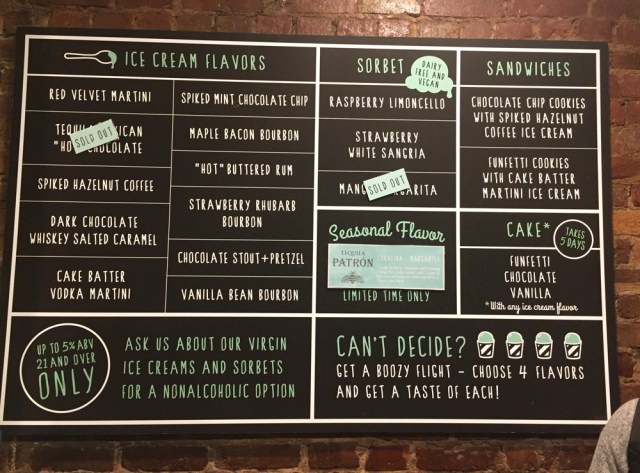 ICE CREAM FLAVORS
RED VELVET MARTINI
TEQUILA MEXICAN
"HOT" CHOCOLATE
SOLD OUT
SPIKED HAZELNUT COFFEE
DARK CHOCOLATE
WHISKEY SALTED CARAMEL
CAKE BATTER
VODKA MARTINI
SPIKED MINT CHOCOLATE CHIP
MAPLE BACON BOURBON
"HOT" BUTTERED RUM
STRAWBERRY RHUBARB
BOURBON
CHOCOLATE STOUT+PRETZEL
VANILLA BEAN BOURBON
SORBET
DAIRY
FREE AND
VEGAN
RASPBERRY LIMONCELLO
STRAWBERRY
WHITE SANGRIA
MANGO MARGARITA
SOLD OUT
Seasonal Flavor
TEQUILA
PATRÓN
TEQUILA MARGARITA
LIMITED TIME ONLY
SANDWICHES
CHOCOLATE CHIP COOKIES
WITH SPIKED HAZELNUT
COFFEE ICE CREAM
FUNFETTI COOKIES
WITH CAKE BATTER
MARTINI ICE CREAM
CAKE*
TAKES
5 DAYS
FUNFETTI
CHOCOLATE
VANILLA
*With any ice cream flavor
UP TO 5% ABV
21 AND OVER
ONLY
ASK US ABOUT OUR VIRGIN
ICE CREAMS AND SORBETS
FOR A NONALCOHOLIC OPTION
CAN'T DECIDE?
GET A BOOZY FLIGHT - CHOOSE 4 FLAVORS
AND GET A TASTE OF EACH!